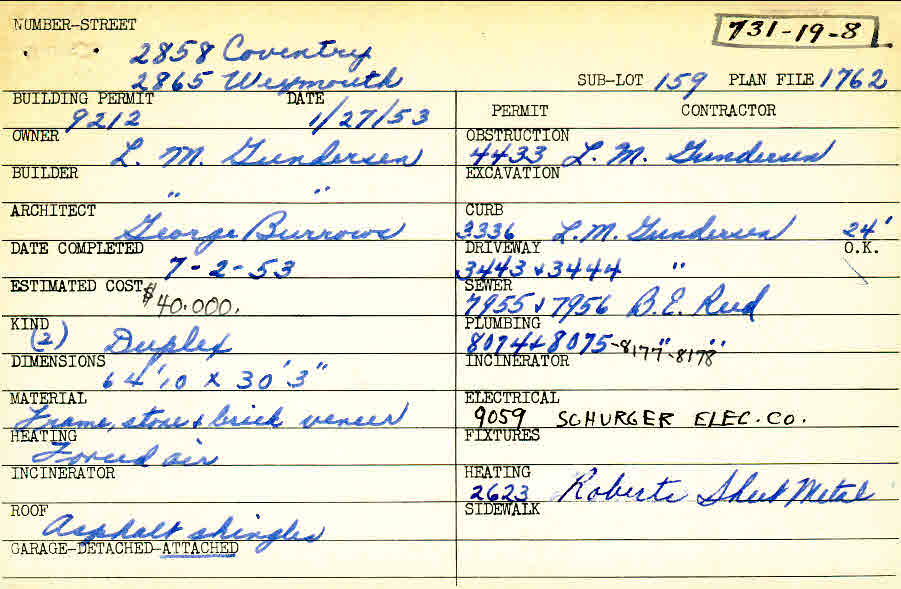 NUMBER-STREET
731-19-8
2858 Coventry
2865 Weymouth
SUB-LOT 159 PLAN FILE 1762
BUILDING PERMIT DATE
9212 1/27/53
OWNER
L. M. Gundersen
BUILDER
" "
ARCHITECT
George Burrows
DATE COMPLETED
7-2-53
ESTIMATED COST
$40.000.
KIND
(2) Duplex
DIMENSIONS
64'10 x 30'3"
MATERIAL
Frame, stone & brick veneer
HEATING
Forced air
INCINERATOR
ROOF
Asphalt shingles
GARAGE-DETACHED-ATTACHED
PERMIT CONTRACTOR
OBSTRUCTION
4433 L. M. Gundersen
EXCAVATION
CURB
3336 L.M. Gundersen 24'
DRIVEWAY O.K.
3443 & 3444 "
SEWER
7955 & 7956 B.E. Reed
PLUMBING
8074 & 8075-8177-8178 " "
INCINERATOR
ELECTRICAL
9059 SCHURGER ELEC. CO.
FIXTURES
HEATING
2623 Roberts Sheet Metal
SIDEWALK